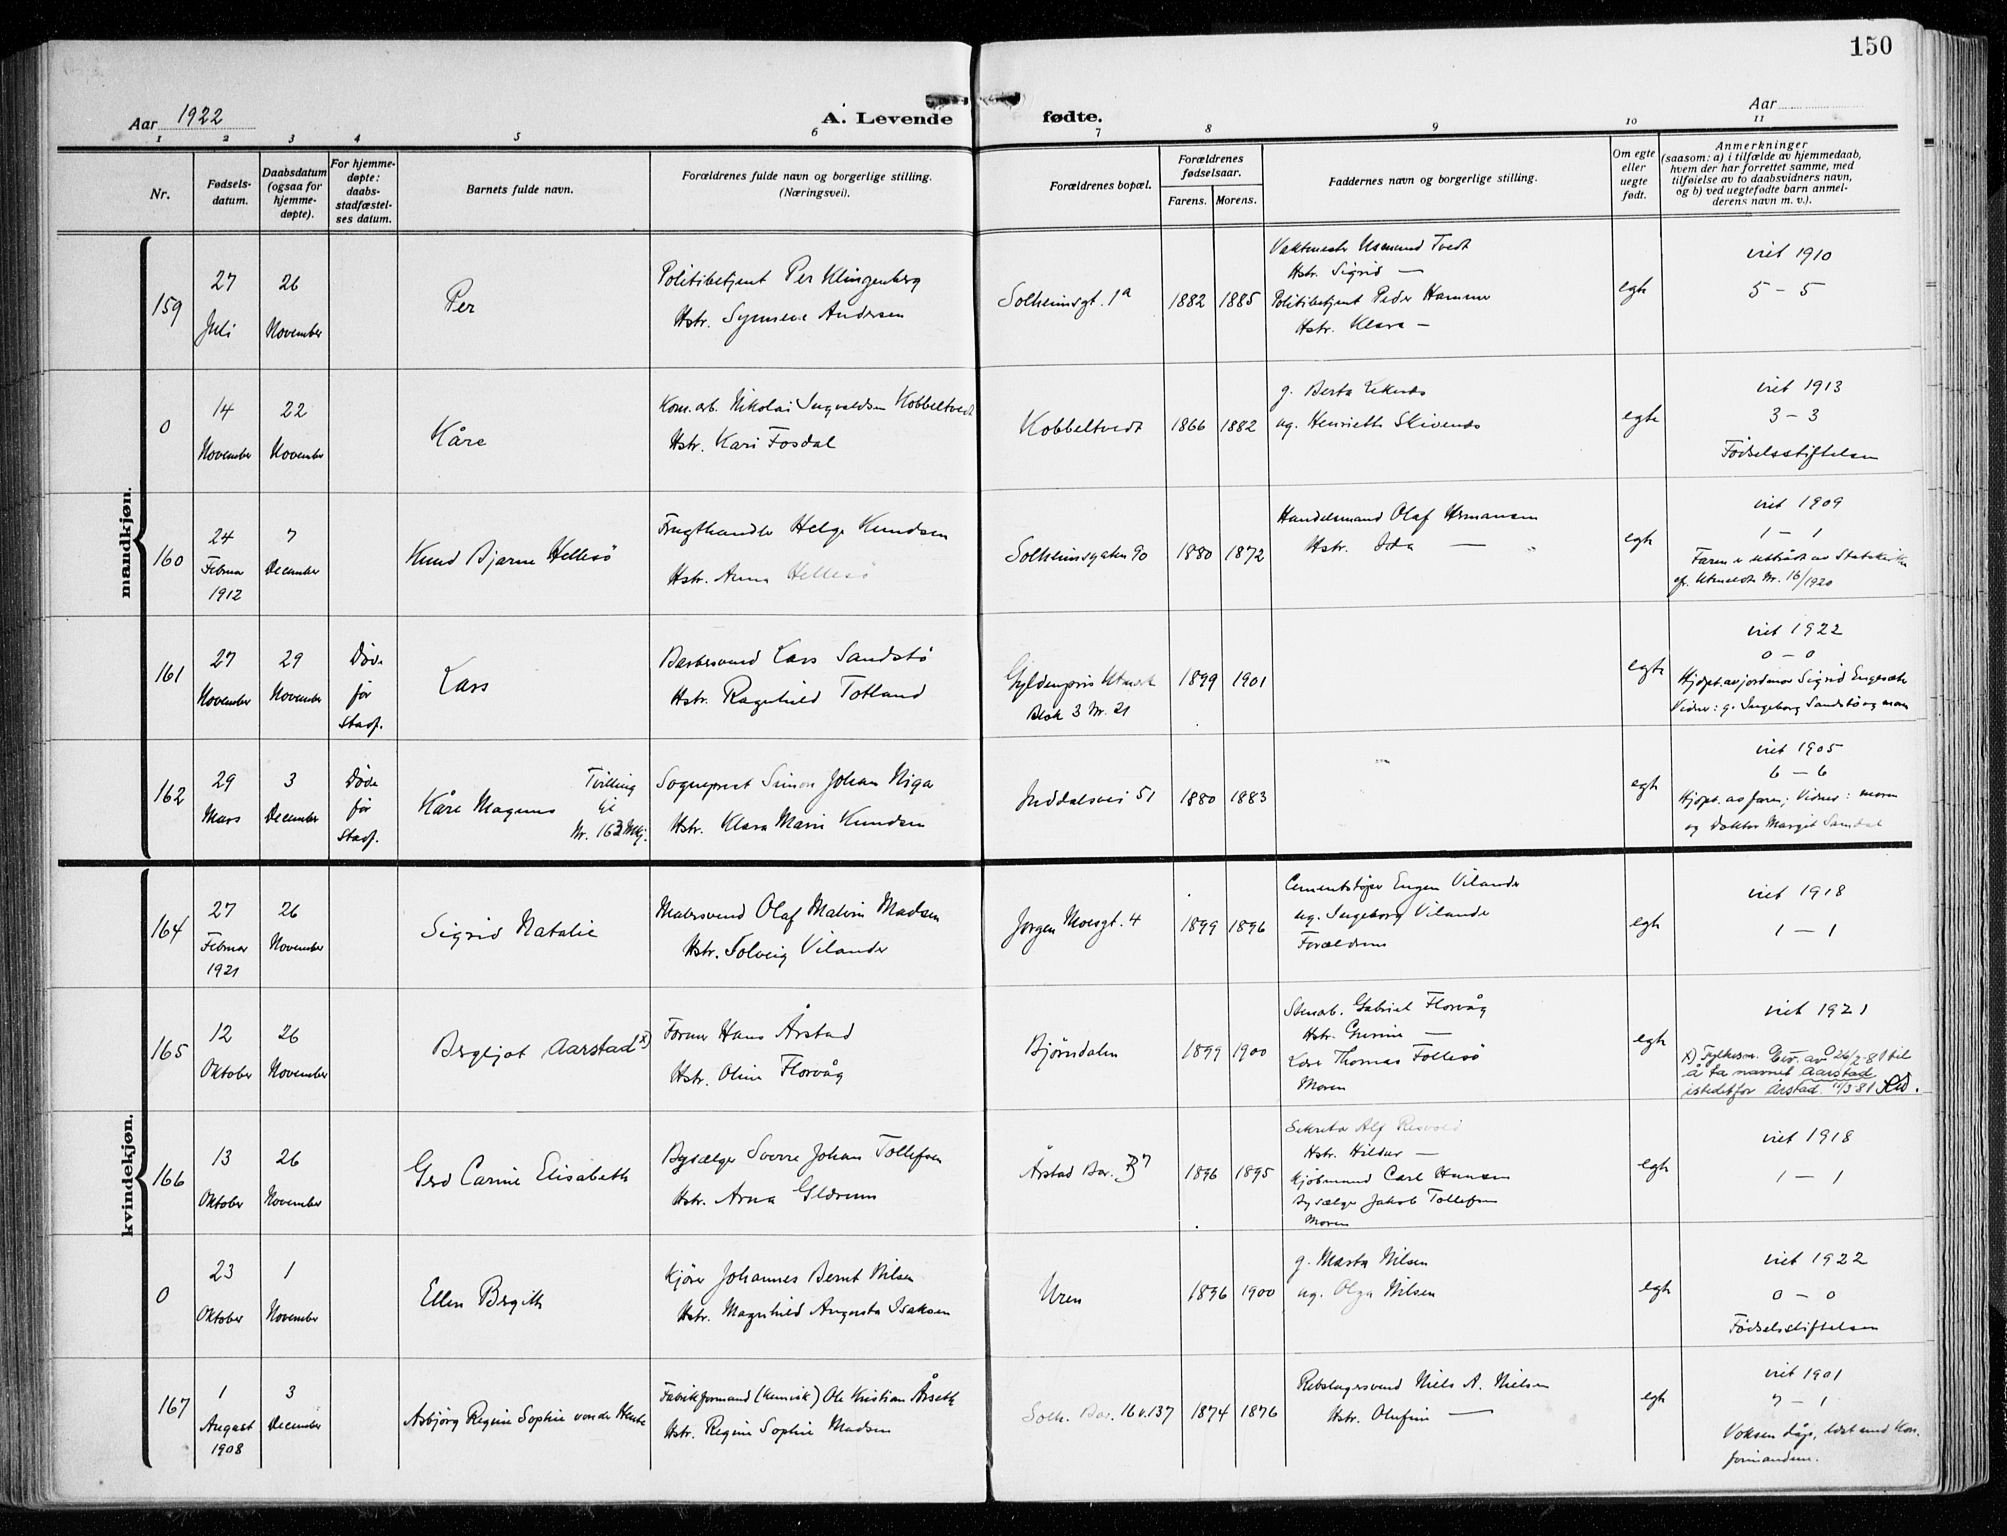 150
Aar 1922
A. Levende fødte.
Aar
1 2 3 4 5 6 7 8 9 10 11
Nr.
Fødsels-
datum.
Daabsdatum
(ogsaa for
hjemme-
døpte).
For hjemme-
døpte:
daabs-
stadfæstel-
ses datum.
Barnets fulde navn.
Forældrenes fulde navn og borgerlige stilling.
(Næringsvei).
Forældrenes bopæl.
Forældrenes
fødselsaar.
Farens. Morens.
Faddernes navn og borgerlige stilling.
Om egte
eller
uegte
født.
Anmerkninger
(saasom: a) i tilfælde av hjemmedaab,
hvem der har forrettet samme, med
tilføielse av to daabsvidners navn,
og b) ved uegtefødte barn anmel-
derens navn m. v.).
mandkjøn.
159
27
Juli
26
November
Per
Politibetjent Per Klingenberg
Hstr. Synneve Andersen
Solheimsgt. 1a
1882 1885
Vaktmestr Asmund Tvedt
Hstr. Sigrid —
Politibetjent Peder Hammer
Hstr. Klara —
egte
viet 1910
5 – 5
0
14
November
22
November
Kåre
Kom. arb. Nikolai Ingvaldsen Kobbeltvedt
Hstr. Kari Fosdal
Kobbeltvedt
1866 1882
g. Berta
ug. Henriette
egte
viet 1913
3 – 3
Fødselsstiftelsen
160
24
Februar
1912
7
December
Knud Bjarne Hellesø
Frugthandler Helge Knudsen
Hstr. Anna Hellesø
Solheimsgaten 90
1880 1872
Handelsmand Olaf Hermansen
Hstr. Ida —
egte
viet 1909
1 – 1
Faren er uttrådt av Statskirken
cfr. Utmeldte Nr. 16/1920
161
27
November
29
November
Døde
før
Stadf.
Lars
Barbersvend Lars Sandstø
Hstr. Ragnhild Totland
Gyldenpris Utmark
Blok 3 Nr. 21
1899 1901
egte
viet 1922
0 – 0
Hjdpt. av jordmor Sigrid Engesæth
Vidner: g. Ingeborg Sandstø og moren
162
29
Mars
3
December
Døde
før
Stadf.
Kåre Magnus
Tvilling
til
Nr. 163 Mkj.
Sogneprest Simon Johan Niga
Hstr. Klara Marie Knudsen
Inddalsvei 51
1880 1883
egte
viet 1905
6 – 6
Hjdpt. av faren; Vidner: moren
og Doktor Margit Samdal
kvindekjøn.
164
27
Februar
1921
26
November
Sigrid Natalie
Malersvend Olaf Malvin Madsen
Hstr. Solveig Vilander
Jørgen Moesgt. 4
1899 1896
Cementstøper Eugen Vilander
ug. Ingeborg Vilander
Forældrene
egte
viet 1918
1 – 1
165
12
Oktober
26
November
Bergljot Aarstad x)
Former Hans Årstad
Hstr. Oline Florvåg
Bjørndalen
1899 1900
Stenarb. Gabriel Florvåg
Hstr. Gurine —
Lods Thomas Follesø
Moren
egte
viet 1921
x) Fylkesm. Gir. av 26/2-81 til
å ta navnet Aarstad
istedetfor Årstad. 11/3 81
166
13
Oktober
26
November
Gerd Carine Elisabeth
Bysælger Sverre Johan Tollefsen
Hstr. Arna Gldrum
Årstad Bar. B7
1896 1895
Sekretær Alf Risvold
Hstr. Hildur —
Kjøbmand Carl Hansen
Bysælger Jakob Tollefsen
Moren
egte
viet 1918
1 – 1
0
23
Oktober
1
November
Ellen Bergith
Kjører Johannes Bernt Nilsen
Hstr. Magnhild Augusta Isaksen
Uren
1896 1900
g. Marta Nilsen
ug. Olga Nilsen
egte
viet 1922
0 – 0
Fødselsstiftelsen
167
1
August
1908
3
December
Asbjørg Regine Sophie von der Hente
Fabrikformand (kemisk) Ole Kristian Årseth
Hstr. Regine Sophie Madsen
Solh. Bar. 16 v. 137
1874 1876
Rebslagersvend Niels A. Nielsen
Hstr. Olufine —
egte
viet 1901
7 – 1
Voksen dåp, læst med Kon-
firmanden.